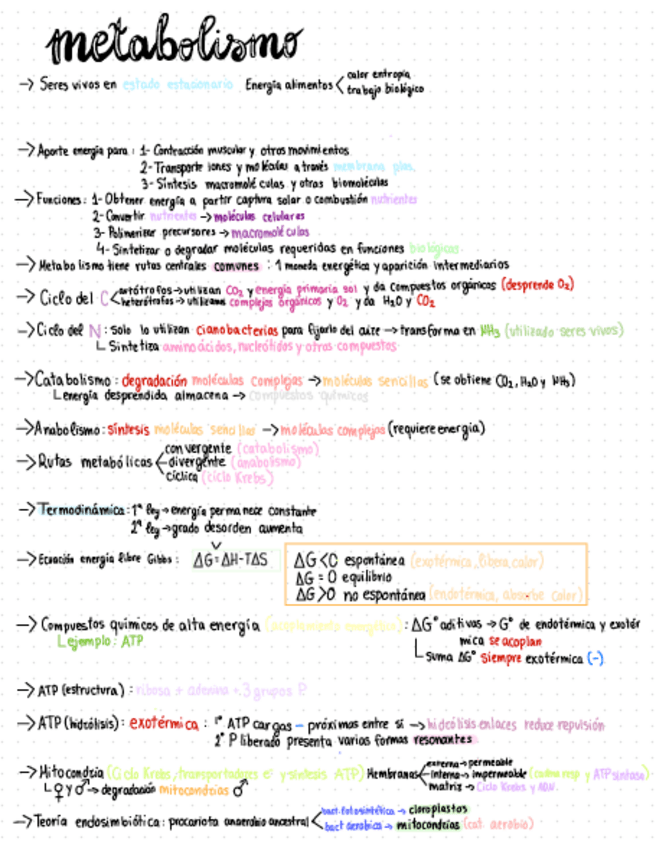 metabolismo
→ Seres vivos en estado estacionario Energía alimentos < calor entropía
trabajo biológico
→ Aporte energía para: 1- Contracción muscular y otros movimientos
2- Transporte iones y moléculas a través membrana plas.
3- Síntesis macromoléculas y otras biomoléculas
→ Funciones: 1- Obtener energía a partir captura solar o combustión nutrientes
2- Convertir nutrientes → moléculas celulares
3- Polimerizar precursores → macromoléculas
4- Sintetizar o degradar moléculas requeridas en funciones biológicas
→ Metabolismo tiene rutas centrales comunes: 1 moneda energética y aparición intermediarios
→ Ciclo del C < autótrofos → utilizan CO₂ y energía primaria sol y da compuestos orgánicos (desprende O₂)
heterótrofos → utilizans complejas orgánicos y O₂ y da H₂O y CO₂
→ Ciclo del N: solo lo utilizan cianobacterias para fijarlo del aire → transforma en NH₃ (utilizado seres vivos)
Sintetiza aminoácidos, nucleótidos y otros compuestos
→ Catabolismo: degradación moléculas complejas → moléculas sencillas (se obtiene CO₂, H₂O y NH₃)
energía desprendida almacena → compuestos químicos
→ Anabolismo: síntesis moléculas sencillas → moléculas complejas (requiere energía)
→ Rutas metabólicas < convergente (catabolismo)
divergente (anabolismo)
cíclica (ciclo Krebs)
→ Termodinámica: 1ª ley → energía permanece constante
2ª ley → grado desorden aumenta
→ Ecuación energía libre Gibbs: ΔG = ΔH-TΔS
ΔG < 0 espontánea (exotérmica, libera calor)
ΔG = 0 equilibrio
ΔG > 0 no espontánea (endotérmica, absorbe calor)
→ Compuestos químicos de alta energía (acoplamiento energético): ΔG° aditivas → G° de endotérmica y exotér
mica se acoplan
ejemplo: ATP
Suma ΔG° siempre exotérmica (-)
→ ATP (estructura): ribosa + adenina + 3 grupos P
→ ATP (hidrólisis): exotérmica: 1° ATP cargas - próximas entre sí → hidrólisis enlaces reduce repulsión
2° P liberado presenta varias formas resonantes
→ Mitocondria (Ciclo Krebs, transportadores e⁻ y síntesis ATP) Membranas < externa → permeable
interna → impermeable (cadena resp y ATP sintasa)
matriz → Ciclo Krebs y ADN.
♀ y ♂ → degradación mitocondrias ♂
→ Teoría endosimbiótica: procariota anaerobio ancestral < bact. fotosintética → cloroplastos
bact aerobica → mitocondrias (cat. aerobio)